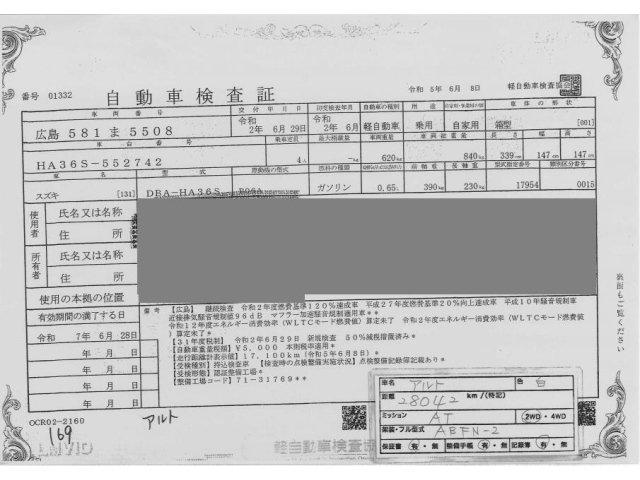 番号 01332 自動車検査証 令和 5年 6月 8日 軽自動車検査協会
車両番号 交付年月日 初度検査年月 自動車の種別 用途 自家用・事業用の別 車体の形状
広島 581 ま 5508 令和 2年 6月 29日 令和 2年 6月 軽自動車 乗用 自家用 箱型 [001]
車台番号 乗車定員 最大積載量 車両重量 車両総重量 長さ 幅 高さ
HA36S-552742 4人 -kg 620kg 840kg 339cm 147cm 147cm
車名 型式 原動機の型式 燃料の種類 前軸重 後軸重 型式指定番号 類別区分番号
スズキ [131] DBA-HA36S R06A ガソリン 0.65 390kg 230kg 17954 0015
使用者 氏名又は名称
住所
所有者 氏名又は名称
住所
使用の本拠の位置
有効期間の満了する日
令和 7年 6月 28日
年 月 日
年 月 日
年 月 日
年 月 日
備考 【広島】 継続検査 令和2年度燃費基準120%達成車 平成27年度燃費基準20%向上達成車 平成10年騒音規制車
近接排気騒音規制値96dB マフラー加速騒音規制適用車**
令和12年度エネルギー消費効率(WLTCモード燃費値)算定未了 令和2年度エネルギー消費効率(WLTCモード燃費値
)算定未了*
【31年度税制】 令和2年6月29日 新規検査 50%減税措置済み*
【自動車重量税額】 ¥5,000 本則税率適用*
【走行距離計表示値】 17,100km(令和5年6月8日)*
【受検種別】 持込検査車 【検査時の点検整備実施状況】 点検整備記録簿記載あり*
【受検形態】 認証整備工場*
【整備工場コード】 71-31769**
裏面もご覧ください
OCR02-2160
169
アルト
LMVID
軽自動車検査協
車名 アルト 色 白
距離 28042 km/(特記)
ミッション AT 2WD・4WD
類装・フル型式 ABFN-2
保証書 有・無 整備手帳 有・無 記録簿 有・無